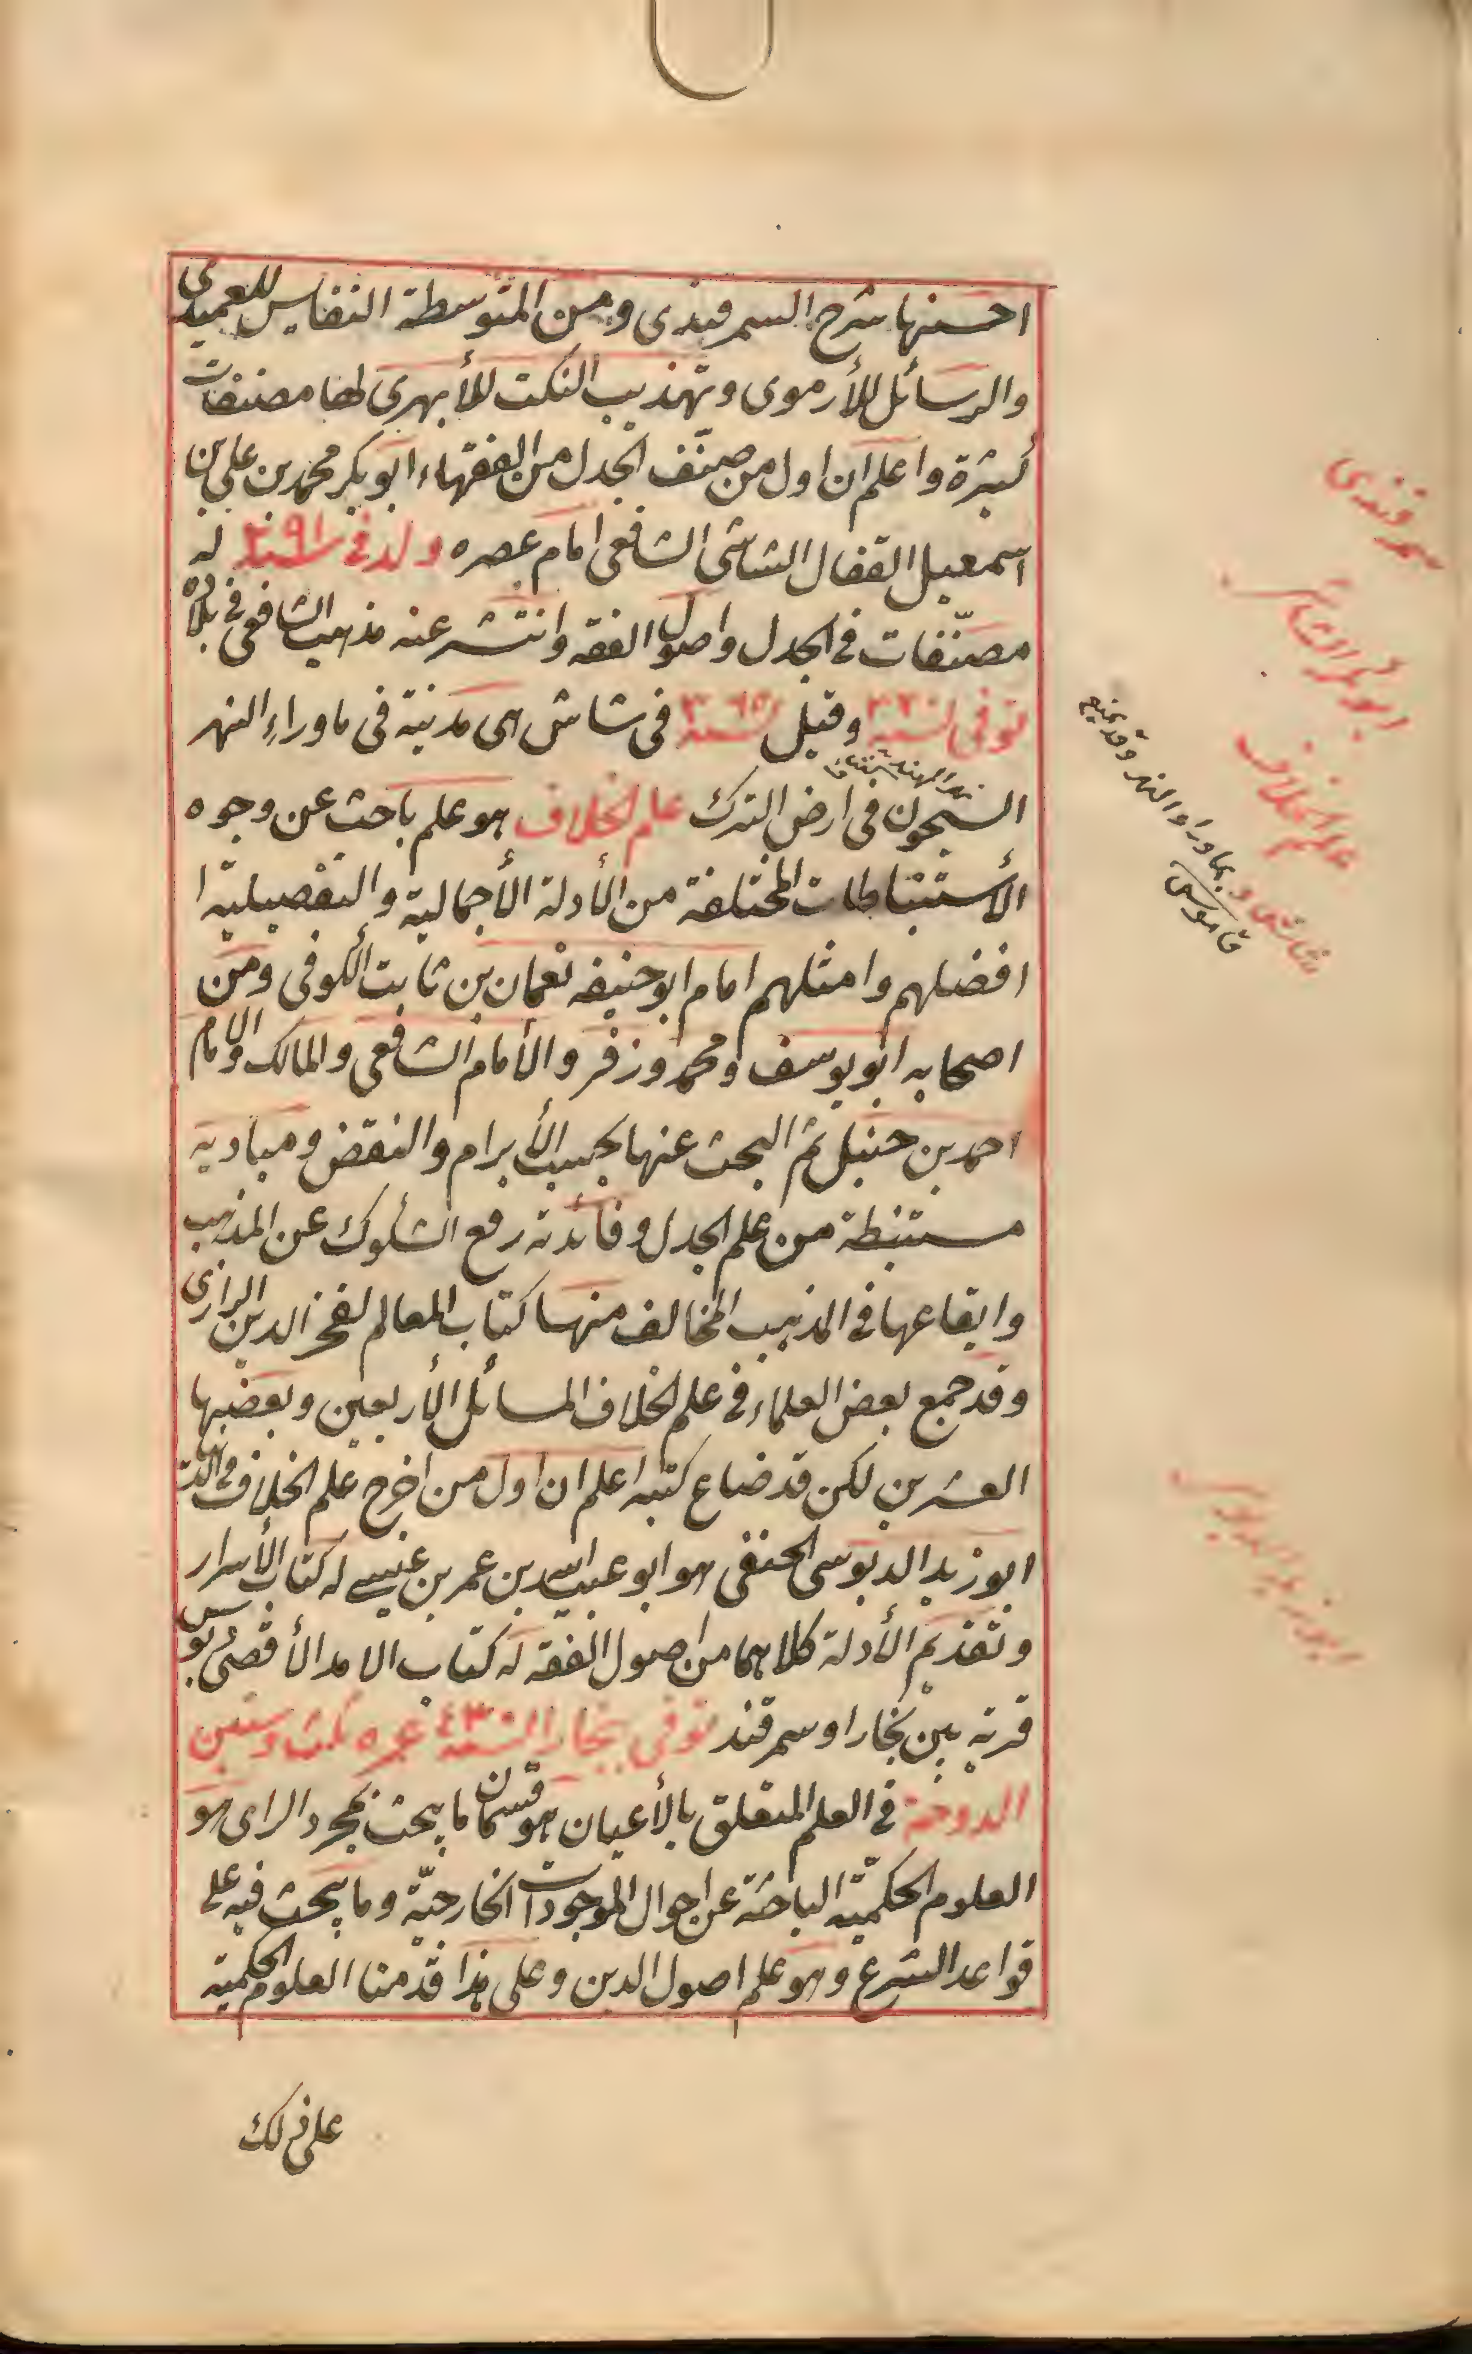 احسنها شرح السمرقندى ومن المتوسطة النفايس للعميدى
والرسائل للأرموى وتهذيب النكت للأبهرى لها مصنفات
كثيرة واعلم ان اول من صنّف الجدل من الفقهاء ابو بكر محمد بن على بن
اسمعيل القفال الشاشى الشافعى امام عصره ولد فى سنة ٢٩١ له
مصنّفات فى الجدل واصول الفقه وانتشر عنه مذهب الشافعى فى بلاده
توفى سنة وقيل سنة فى شاش هى مدينة فى ماوراء النهر
السيحون فى ارض الترك علم الخلاف هو علم باحث عن وجوه
الأستنباطات المختلفة من الأدلة الأجمالية والتفصيلية ا
افضلهم وامثلهم امام ابو حنيفه نعمان بن ثابت الكوفى ومن
اصحابه ابو يوسف ومحمد وزفر والأمام الشافعى والمالك والامام
احمد بن حنبل ثم البحث عنها بحسب الأبرام والنقض ومباديه
مستنبطة من علم الجدل وفائدته رفع الشكوك عن المذهب
وايقاعها فى المذهب المخالف منها كتاب المعالم لفخر الدين الرازى
وقد جمع بعض العلماء فى علم الخلاف المسائل الأربعين وبعضها
العشرين لكن قد ضاع كتبه اعلم ان اول من اخرج علم الخلاف فى الدنيا
ابو زيد الدبوسى الحنفى هو ابو عبيد الله بن عمر بن عيسى له كتاب الأسرار
وتقديم الأدلة كلاهما من اصول الفقه له كتاب الامد الأقصى دبوس
قرية بين بخارا وسمرقند توفى بخارا سنة ٤٣٠ عمره ثلث وستين
الدوحة فى العلم المتعلق بالأعيان هو قسمان ما يبحث بمجرد الراى هو
العلوم الحكميّة الباحثة عن احوال الموجودات الخارجيّة وما يبحث فيه على
قواعد الشرع وهو علم اصول الدين وعلى هذا قدّمنا العلوم الحكمية
على ذلك
سمرقندى
ابو بكر الشاشى
علم الخلاف
شاش د بماوراء النهر وقد يمنع
قاموس
ابو زيد الدبوسى